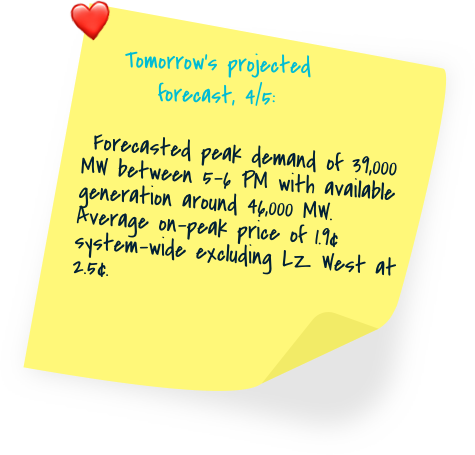 Tomorrow's projected
forecast, 4/5:
Forecasted peak demand of 39,000
MW between 5-6 PM with available
generation around 46,000 MW.
Average on-peak price of 1.9¢
system-wide excluding LZ West at
2.5¢.